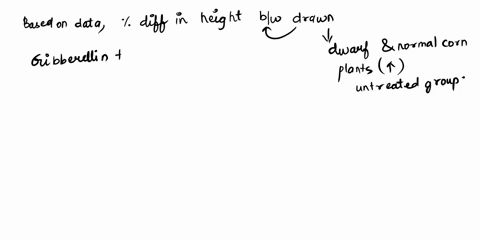 Based on data, % diff in height b/w drawn
dwarf & normal corn
plants (↑)
untreated group.
Gibberellin +